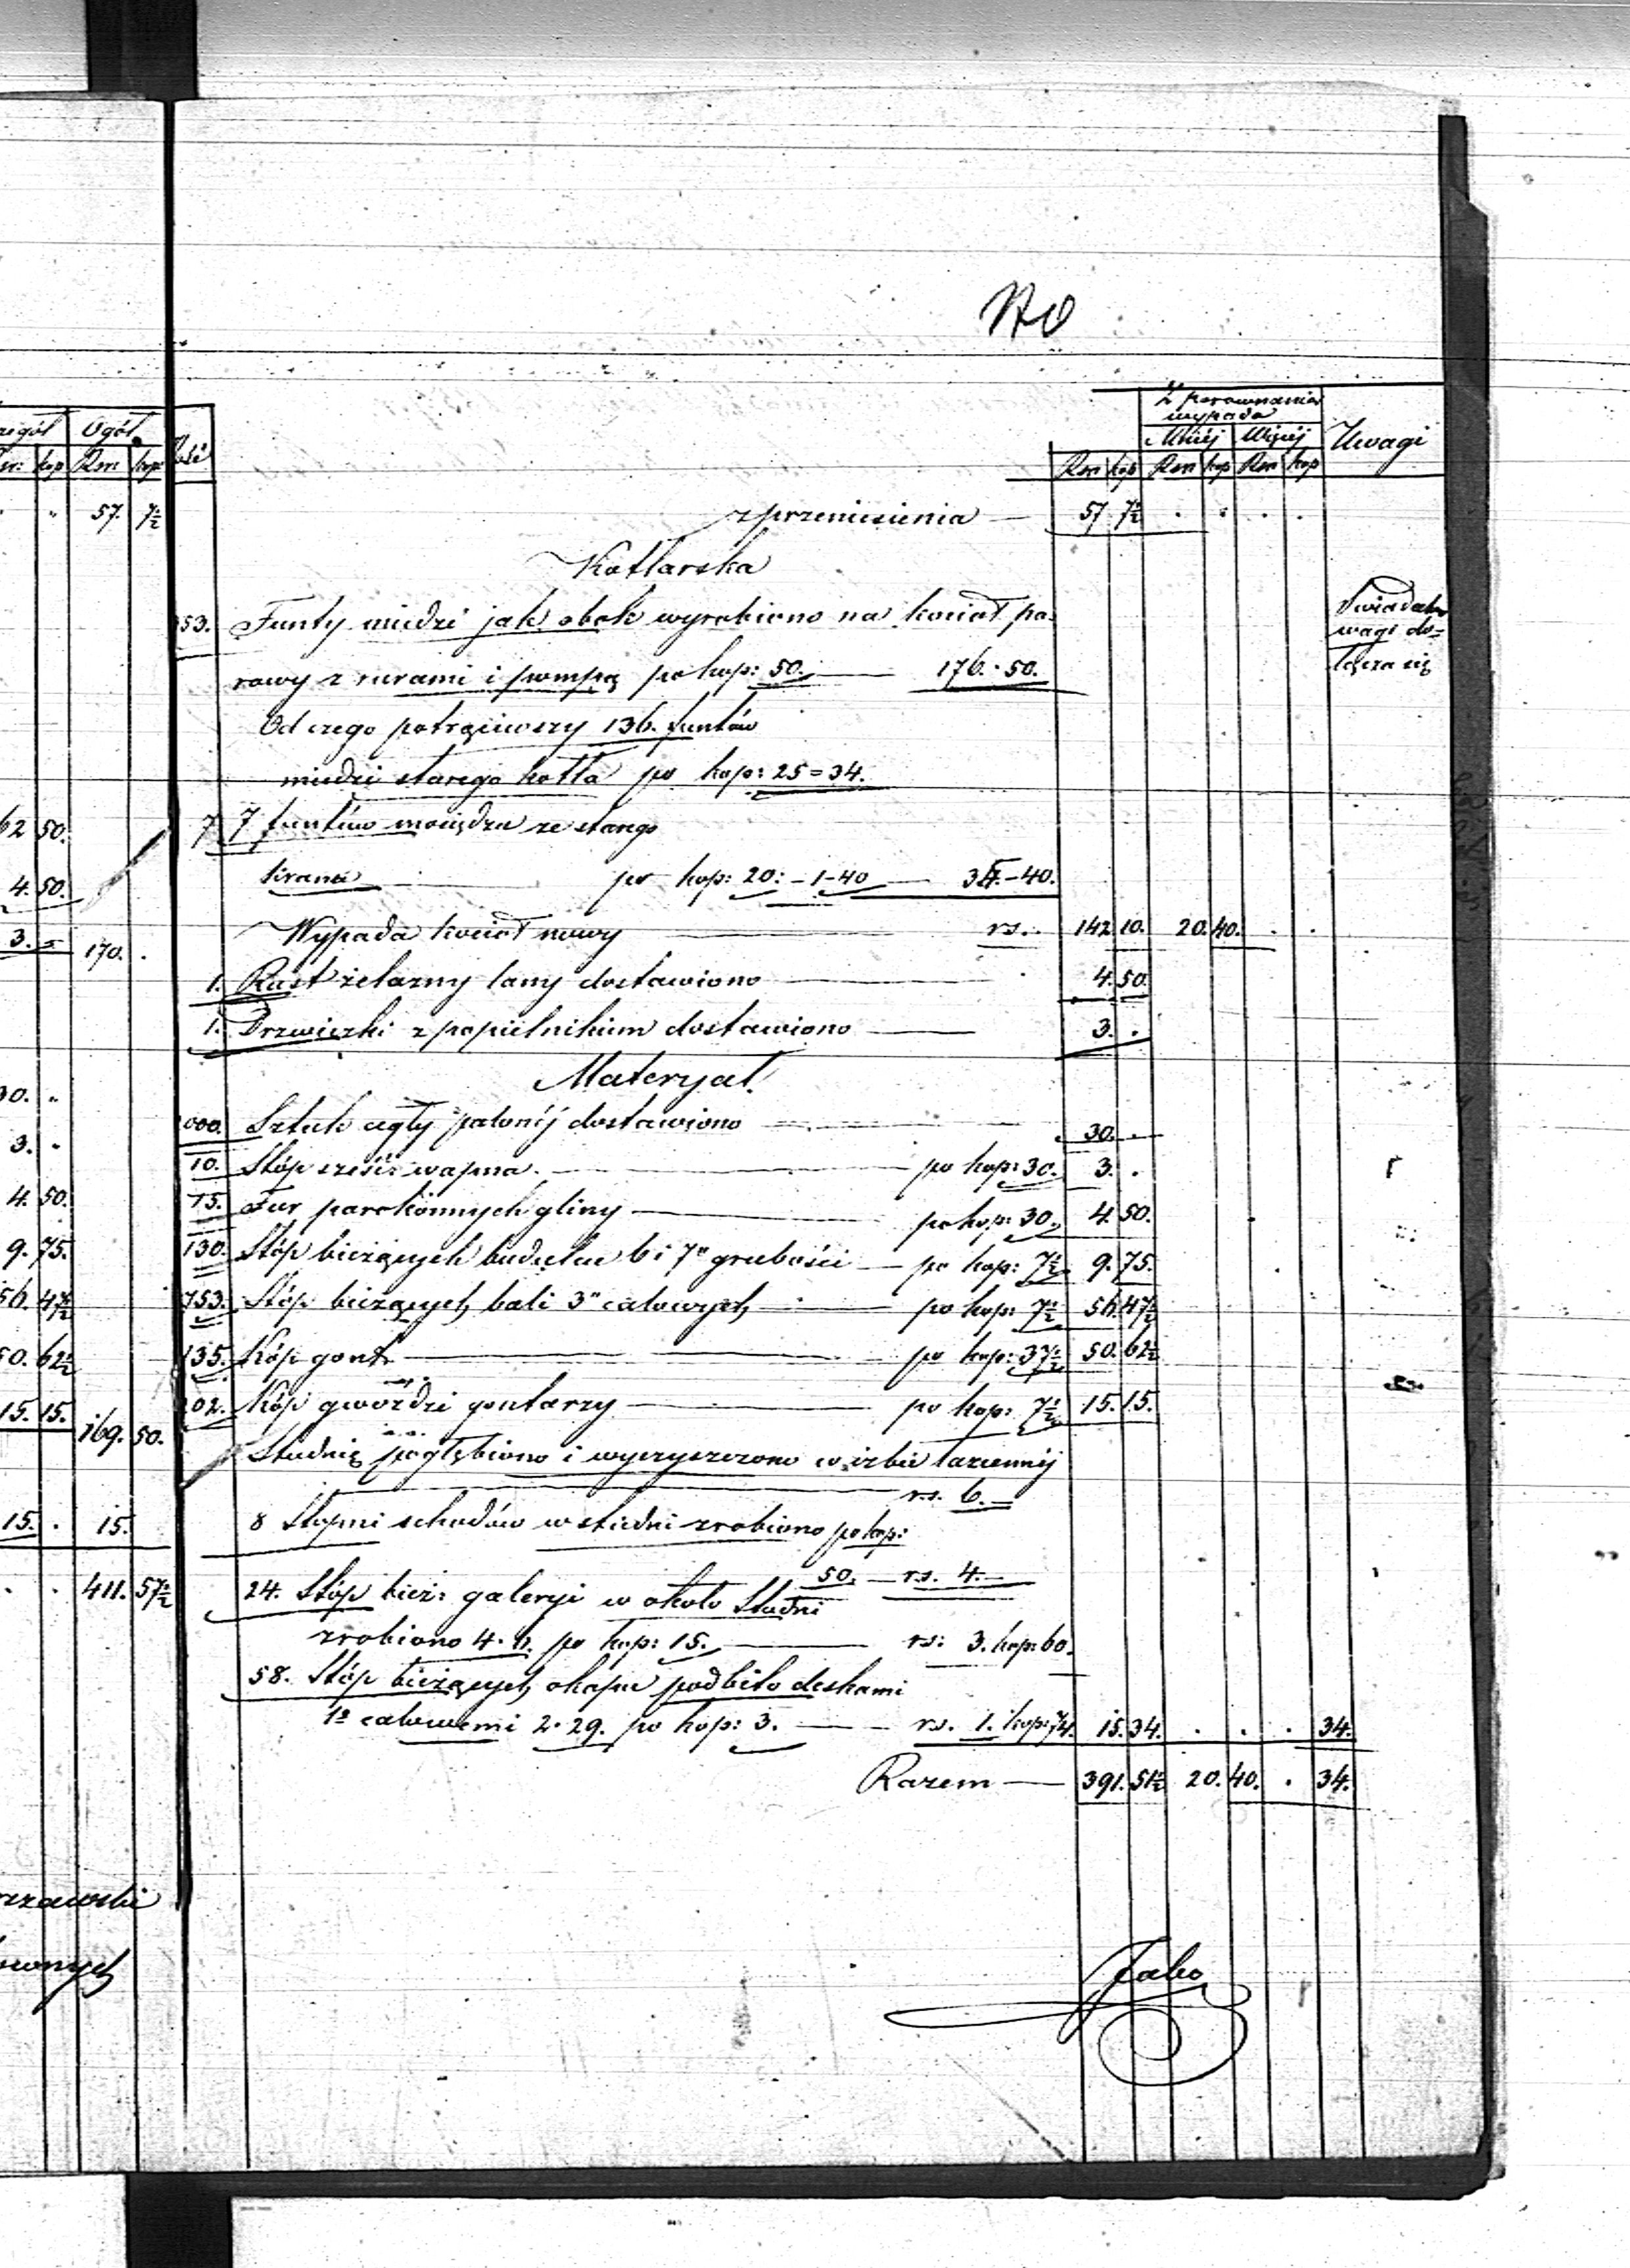 170
Ogół
Z porównania
wypada
Mniéj Więcéj
Uwagi
Rsr: kop Rsr: kop
Rsr kop Rsr kop Rsr kop
57. 7½
z przeniesienia — 57 7½
Kotlarska
353. Funty miedzi jak obok wyrobiono na kocioł pa-
rowy z rurami i pompą po kop: 50. — 176.50.
Świadectwo
wagi do=
łącza się
Od czego potrąciwszy 136. funtów
miedzi starego kotła po kop: 25 = 34.
62 50. 7 7 funtów mosiądzu ze starego
4. 50. kranu — po kop: 20: – 1–40 — 35.–40.
3. – 170. Wypada kocioł nowy — rs. 142 10. 20. 40.
1. Rust żelazny lany dostawiono — 4. 50.
1. Drzwiczki z popielnikiem dostawiono — 3. .
Materyał.
30. „ 000. Sztuk cegły palonéj dostawiono — 30. .
3. „ 10. Stóp sześć: wapna. — po kop: 30. 3. .
4. 50. 15. Fur parokonnych gliny — po kop: 30. 4. 50.
9. 75. 130. Stóp bieżących budulcu 6 i 7" grubości — po kop: 7½ 9. 75.
56. 47½ 753. Stóp bieżących bali 3" calowych — po kop: 7½ 56. 47½
50. 62½ 135. Kóp gont — po kop: 37½ 50. 62½
15. 15. 169. 50. 202. Kóp gwoździ gontarzy — po kop: 7½ 15. 15.
Studnię pogłębiono i wyczyszczono w izbie łaziennéj
— rs. 6. –
15. . 15. 8 Stopni schodów w studni zrobiono po kop:
50. — rs. 4. –
. . 411. 57½ 24. Stóp bież: galeryi w okolo Studni
zrobiono 4. 6. po kop: 15. — rs: 3. kop: 60.
58. Stóp bieżących okapu podbito deskami
1" calowemi 2. 29. po kop: 3. — rs. 1. kop: 74. 15. 34. . . . 34.
Razem — 391. 51½ 20. 40. . 34.